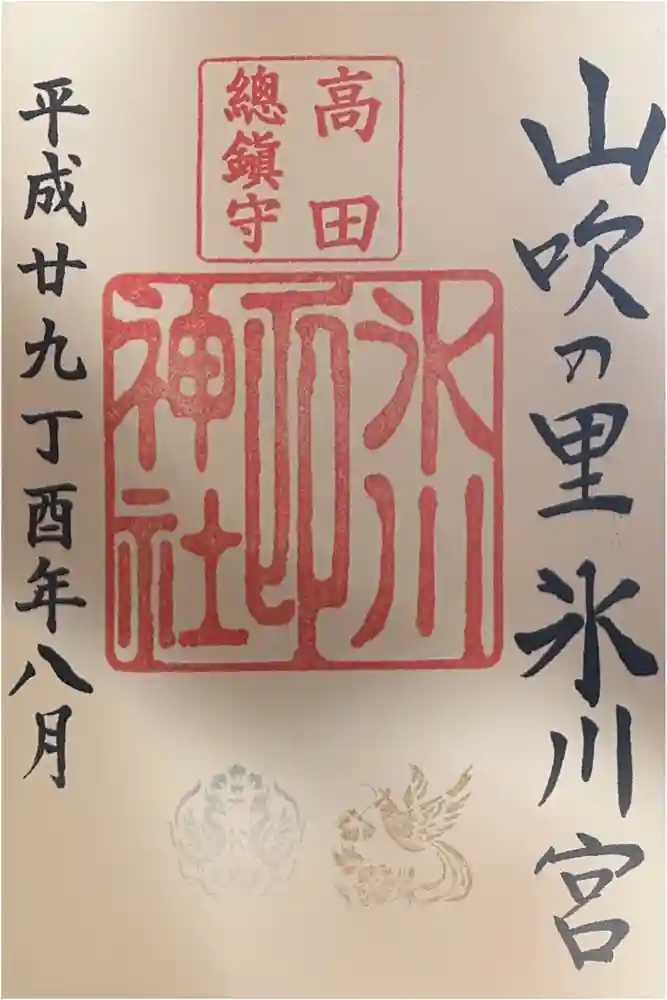 山吹の里氷川宮
高田
總鎭守
氷川
神社
平成廿九丁酉年八月